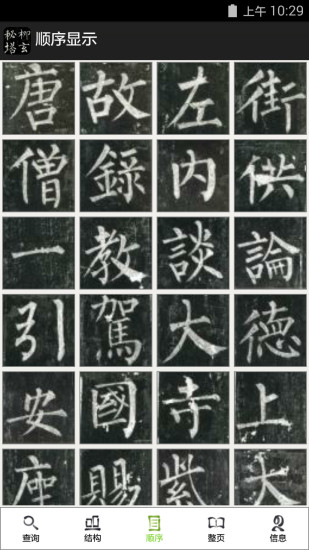 上午 10:29
柳玄秘塔
顺序显示
唐故左街
僧録内供
一教談論
引駕大德
安國寺上
座賜紫大
查询 结构 顺序 整页 信息